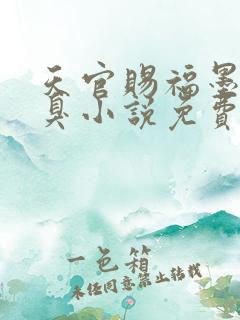 天官赐福墨
真小说免费
一色箱
未经同意禁止转载